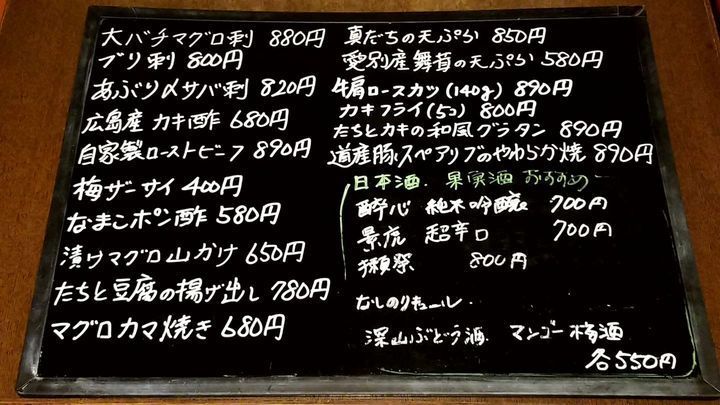 大バチマグロ刺 880円
ブリ刺 800円
あぶり〆サバ刺 820円
広島産 カキ酢 680円
自家製ローストビーフ 890円
梅ザーサイ 400円
なまこポン酢 580円
漬けマグロ山かけ 650円
たちと豆腐の揚げ出し 780円
マグロカマ焼き 680円
真だちの天ぷら 850円
愛別産舞茸の天ぷら 580円
牛肩ロースカツ(140g) 890円
カキフライ(5コ) 800円
たちとカキの和風グラタン 890円
道産豚スペアリブのやわらか焼 890円
日本酒.果実酒 おすすめ
酔心 純米吟醸 700円
景虎 超辛口 700円
獺祭 800円
なしのリキュール.
深山ぶどう酒. マンゴー梅酒
各550円